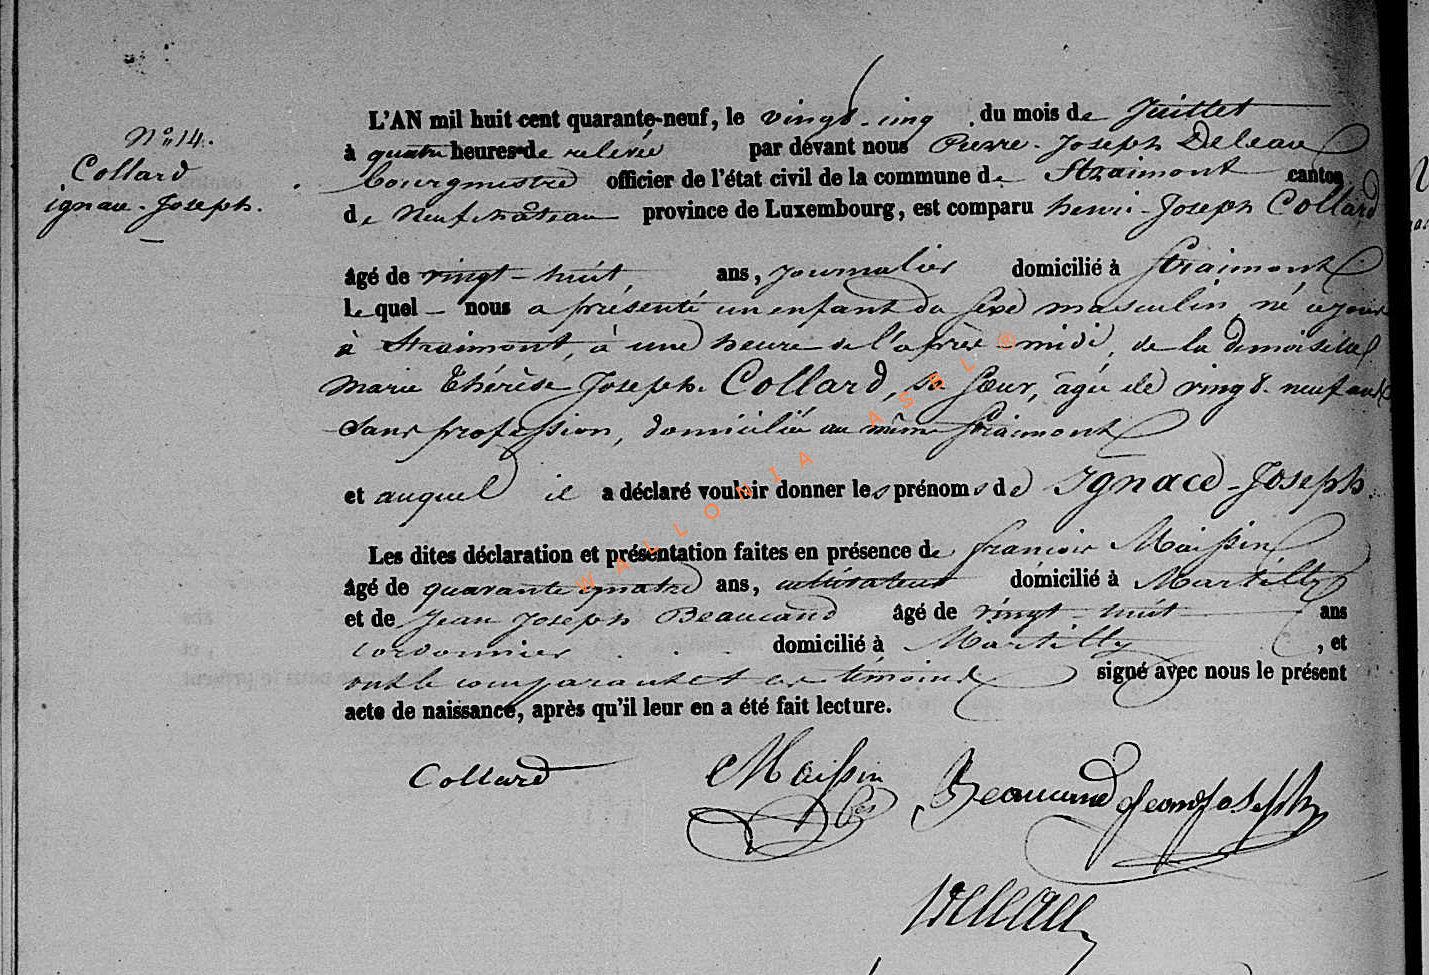 N° 14.
Collard
ignace-Joseph.
L'AN mil huit cent quarante-neuf, le vingt-cinq du mois de Juillet
à quatre heures de relevée par dévant nous Pierre-Joseph Deleau
bourgmestre officier de l'état civil de la commune de Straimont canton
de Neufchâteau province de Luxembourg, est comparu henri-Joseph Collard
âgé de vingt-huit ans, journalier domicilié à Straimont
lequel nous a présenté un enfant du sexe masculin, né ce jour
à Straimont, à une heure de l'après-midi, de la demoiselle
Marie Thérèse Joseph. Collard, sa sœur, âgée de vingt-neuf ans
sans profession, domiciliée au même Straimont
et auquel il a déclaré vouloir donner les prénoms de Ignace-Joseph.
Les dites déclaration et présentation faites en présence de françois Maissin
âgé de quarante quatre ans, cultivateur domicilié à Martilly
et de Jean Joseph Beaucand âgé de vingt-huit ans
cordonnier domicilié à Martilly, et
ont le comparant et les témoins signé avec nous le présent
acte de naissance, après qu'il leur en a été fait lecture.
Collard Maissin Beaucand Jean Joseph
Deleau
WALLONIA ASBL ©